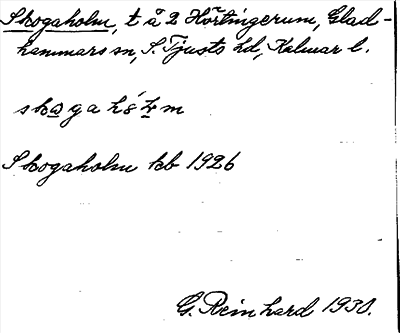 Skogaholm, t å 2 Hörtingerum, Glad-
hammars sn, S. Tjusts hd, Kalmar l.
Skogaholm kb 1926
G. Reinhard 1930.